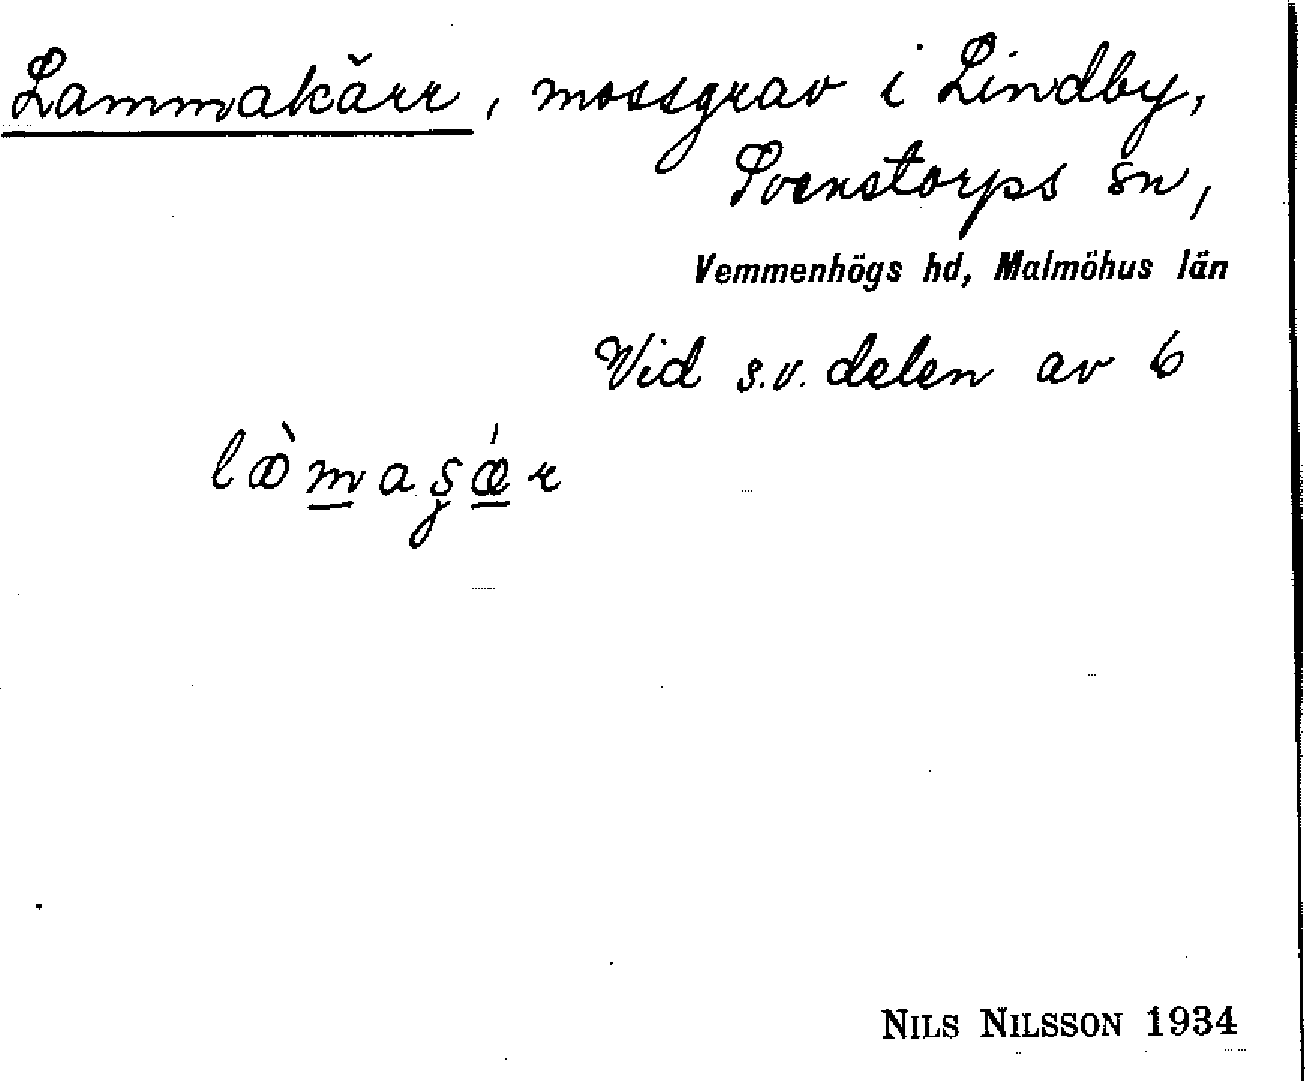 Lammakärr, mossgrav i Lindby,
Svenstorps sn,
Vemmenhögs hd, Malmöhus län
Vid s.v. delen av 6
NILS NILSSON 1934